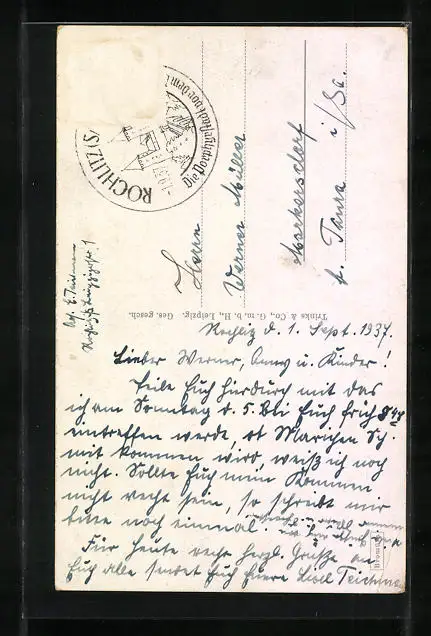 ROCHLITZ (SA
Die Porphyrstadt vor dem
-1.9.37
Herrn
Werner Müller
Markersdorf
b. Taura i/Sa.
Abs. E. Teichmann
Trinks & Co., G. m. b. H., Leipzig. Ges. gesch.
Rochlitz d. 1. Sept. 1937.
Lieber Werner, Anny u. Kinder!
Teile Euch hierdurch mit das
ich am Sonntag d. 5. bei Euch früh 8
eintreffen werde, ob Mariechen Sch.
mit kommen wird weiß ich noch
nicht. Sollte Euch mein Kommen
nicht recht sein, so schreibt mir
bitte noch einmal.
Für heute recht herzl. Grüße an
Euch alle sendet Euch Eure Liesel Teichmann